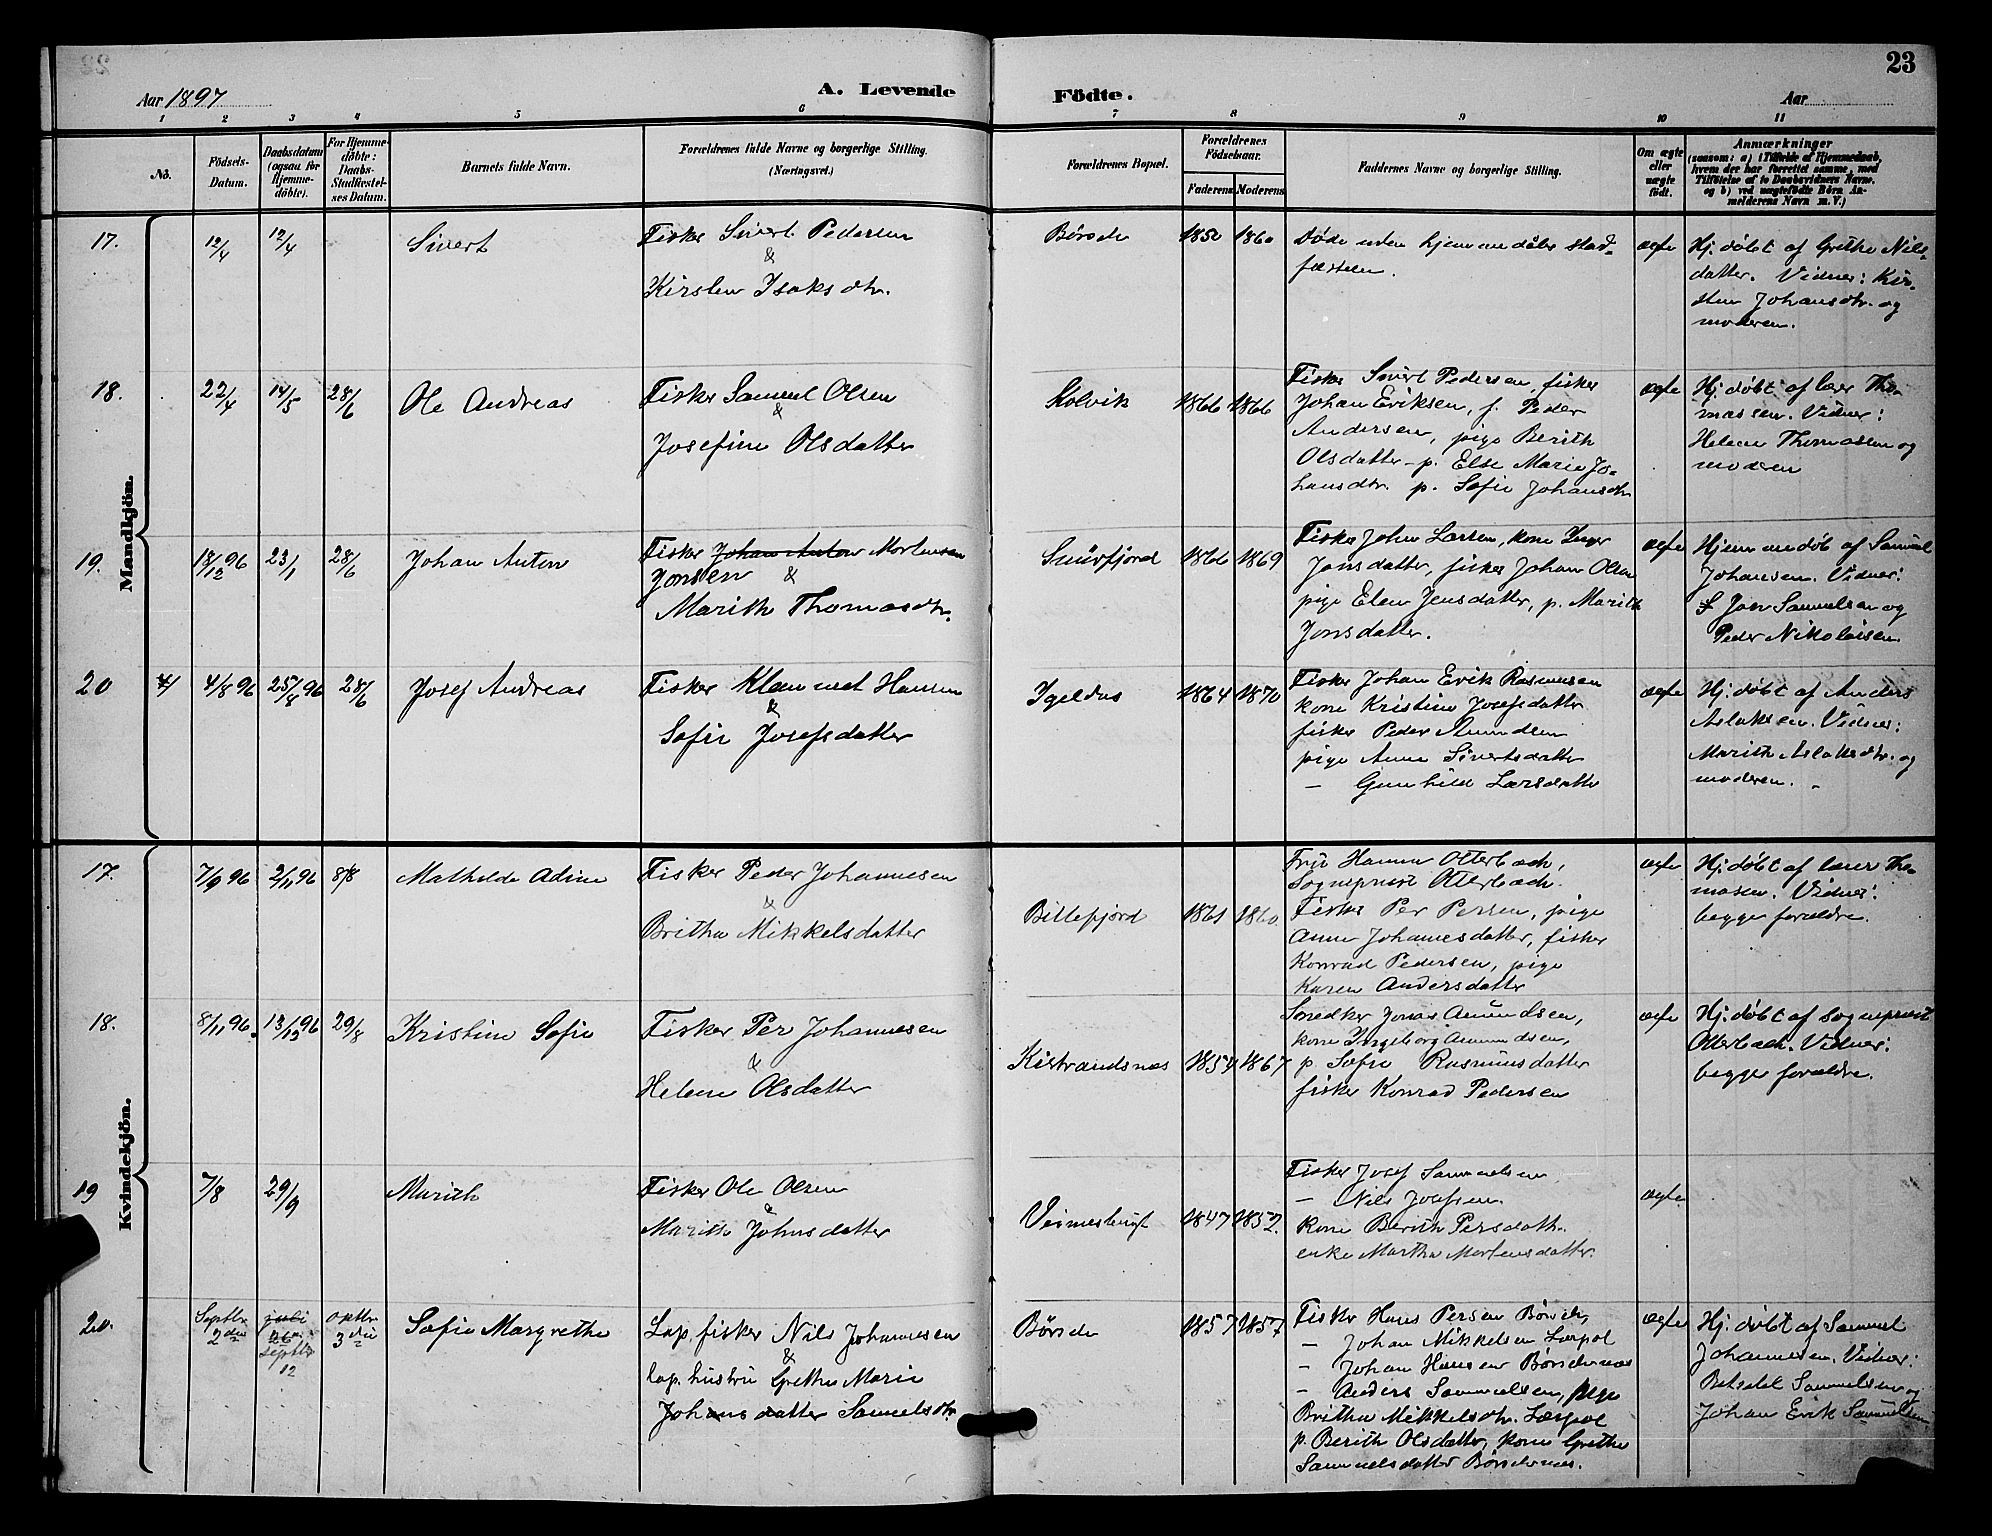 23
Aar 1897
A. Levende
Födte.
Aar
1 2 3 4 5 6 7 8 9 10 11
No.
Födsels-
Datum.
Daabsdatum
(ogsaa for
Hjemme-
döbte).
For Hjemme-
döbte:
Daabs-
Stadfæstel-
ses Datum.
Barnets fulde Navn.
Forældrenes fulde Navne og borgerlige Stilling.
(Næringsvei.)
Forældrenes Bopæl.
Forældrenes
Födselsaar.
Faderens
Moderens
Faddernes Navne og borgerlige Stilling.
Om ægte
eller
uægte
födt.
Anmærkninger
(saasom: a) i Tilfælde af Hjemmedaab,
hvem der har forrettet samme, med
Tilföielse af to Daabsvidners Navne,
og b) ved uægtefödte Börn An-
melderens Navn m. V.)
Mandkjön.
17.
12/4
12/4
Sivert
Fisker Sivert Pedersen
&
Kirsten Isaksdtr.
Børsde
1850
1860
Døde uden hjemmedåbs stad-
fæstelse.
ægte
Hj. døbt af Grethe Nils-
datter. Vidner: Kir-
sten Johansdtr. og
moderen.
18.
22/4
14/5
28/6
Ole Andreas
Fisker Samuel Olsen
&
Josefine Olsdatter
Kolvik
1866
1866
Fisker Sivert Pedersen, fisker
Johan Eriksen, f. Peder
Andersen, pige Berith
Olsdatter - p. Else Marie Jo-
hansdtr. p. Sofie Johansdtr
ægte
Hj. døbt af lærer Tho-
massen. Vidner:
Helene Thomassen og
moderen
19.
18/12 96
23/1
28/6
Johan Anton
Fisker Johan Anton Mortensen
Jonsen &
Marith Thomasdtr.
Smørfjord
1866
1869
Fisker John Larsen, kone Inger
Jonsdatter, fisker Johan Olsen
pige Elen Jensdatter, p. Marith
Jonsdatter.
ægte
Hjemmedøb af Samuel
Johansen. Vidner:
Jon Samuelsen og
Peder Nikolaisen
20
4/8 96
25/8 96
28/6
Josef Andreas
Fisker Klemmet Hansen
&
Sofie Josefsdatter
Igeldas
1864
1870
Fisker Johan Erik Rasmusen
kone Kristine Josefsdatter
fisker Peder Amundsen
pige Anne Sivertsdatter
— Gunhild Larsdatter
ægte
Hj. døbt af Anders
Aslaksen. Vidner:
Marith Aslaksdtr. og
moderen.
Kvindekjön.
17.
7/9 96
2/11 96
8/8
Mathilde Adine
Fisker Peder Johannesen
&
Britha Mikkelsdatter
Billefjord
1861
1860
Frü Hanna Otterbech,
Sogneprest Otterbech.
Fisker Per Persen, pige
Anne Johannesdatter, fisker
Konrad Pedersen, pige
Karen Andersdatter
ægte
Hj. døbt af lærer Tho-
masen. Vidner:
begge forældre.
18.
8/11 96.
13/12 96
29/8
Kristine Sofie
Fisker Per Johannesen
&
Helene Olsdatter
Kistrandsnæs
1854
1867
Snedker Jonas Amundsen,
kone Ingeborg Amundsen,
p. Sofie Rasmusdatter
fisker Konrad Pedersen
ægte
Hj. døbt af sogneprest
Otterbech. Vidner:
begge forældre.
19
7/8
29/9
Marith
Fisker Ole Olsen
&
Marith Johnsdatter
Veinesbugt
1847
1852.
Fisker Josef Samuelsen
— Nils Josefsen
kone Berith Persdatt.
enke Martha Mortensdatter.
ægte
20.
Septbr.
2den
juli
26
septbr
12
optbr.
3die
Sofie Margrethe
Lap. fisker Nils Johannesen
&
lap. hustru Grethe Marie
Johansdatter Samuelsdtr.
Børsde
1857
1857
Fisker Hans Persen Børsde,
— Johan Mikkelsen Lærpol
— Johan Hansen Børsdernæs
— Anders Sammelsen, pige
Britha Mikkelsdtr. Lærpol
p. Berith Olsdatter, kone Grethe
Sammelsdatter Børsdernæs.
ægte
Hj. døbt af Samuel
Johannesen. Vidner:
Samuelsen og
Johan Erik Samuelsen